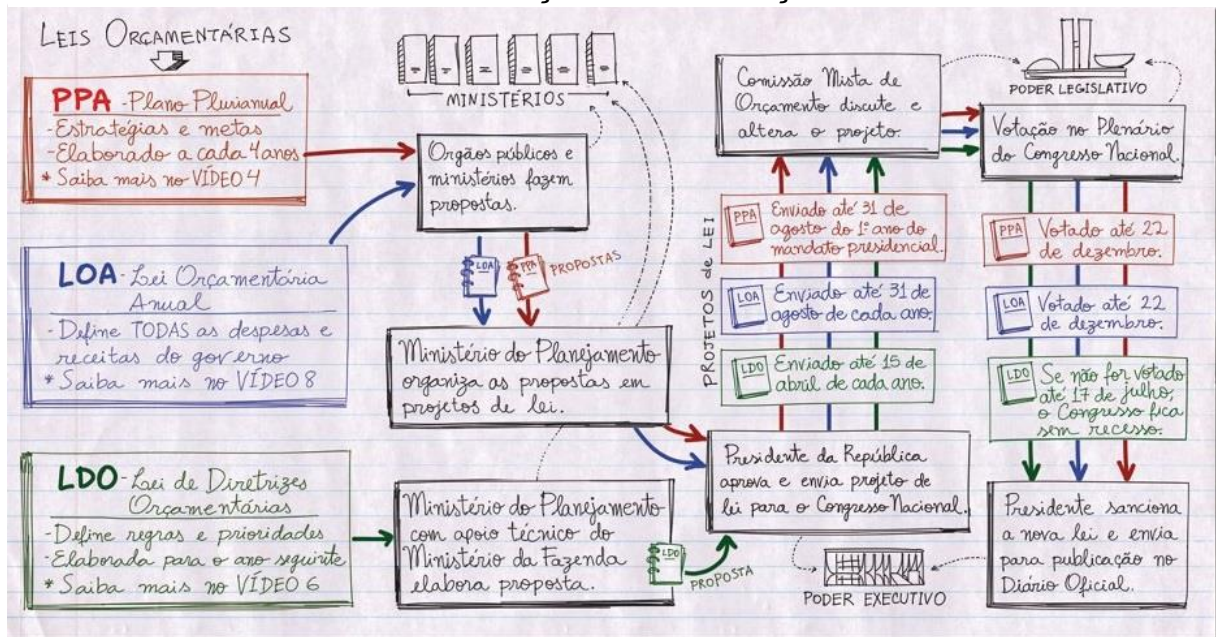 LEIS ORÇAMENTÁRIAS
PPA - Plano Plurianual
- Estratégias e metas
- Elaborado a cada 4 anos
* Saiba mais no VÍDEO 4
LOA - Lei Orçamentária
Anual
- Define TODAS as despesas e
receitas do governo
* Saiba mais no VÍDEO 8
LDO - Lei de Diretrizes
Orçamentárias
- Define regras e prioridades
- Elaborada para o ano seguinte
* Saiba mais no VÍDEO 6
MINISTÉRIOS
Orgãos públicos e
ministérios fazem
propostas.
LOA
PPA
PROPOSTAS
Ministério do Planejamento
organiza as propostas em
projetos de lei.
Ministério do Planejamento
com apoio técnico do
Ministério da Fazenda
elabora proposta.
LDO
PROPOSTA
Presidente da República
aprova e envia projeto de
lei para o Congresso Nacional.
PODER EXECUTIVO
PROJETOS de LEI
PPA
Enviado até 31 de
agosto do 1º ano do
mandato presidencial.
LOA
Enviado até 31 de
agosto de cada ano.
LDO
Enviado até 15 de
abril de cada ano.
Comissão Mista de
Orçamento discute e
altera o projeto.
PODER LEGISLATIVO
Votação no Plenário
do Congresso Nacional.
PPA
Votado até 22
de dezembro.
LOA
Votado até 22
de dezembro.
LDO
Se não for votado
até 17 de julho,
o Congresso fica
sem recesso.
Presidente sanciona
a nova lei e envia
para publicação no
Diário Oficial.